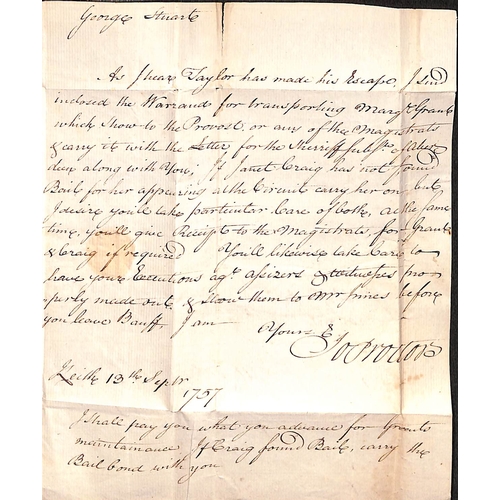 George Stuart
As I hear Taylor has made his Escape, I send
inclosed the Warrand for transporting Margt Grant
which show to the Provost, or any of the Magistrats
& carry it with the Letter for the Sherriff subpt of Aber
deen along with You; If Janet Craig has not found
Bail for her appearing at the Circuit carry her on but
I desire you'll take particular Care of both, at the same
time, you'll give Receipt to the Magistrats, for Grant
& Craig if required You'll likewise take Care to
have your Executions agt assizers & witnesses pro
perly made out & show them to Mr Innes before
you leave Banff. I am
Yours &
Jo Proctor
Leith 13th Septr
1757
I shall pay you what you advance for Grants
maintainance If Craig found Bail, carry the
Bail bond with you